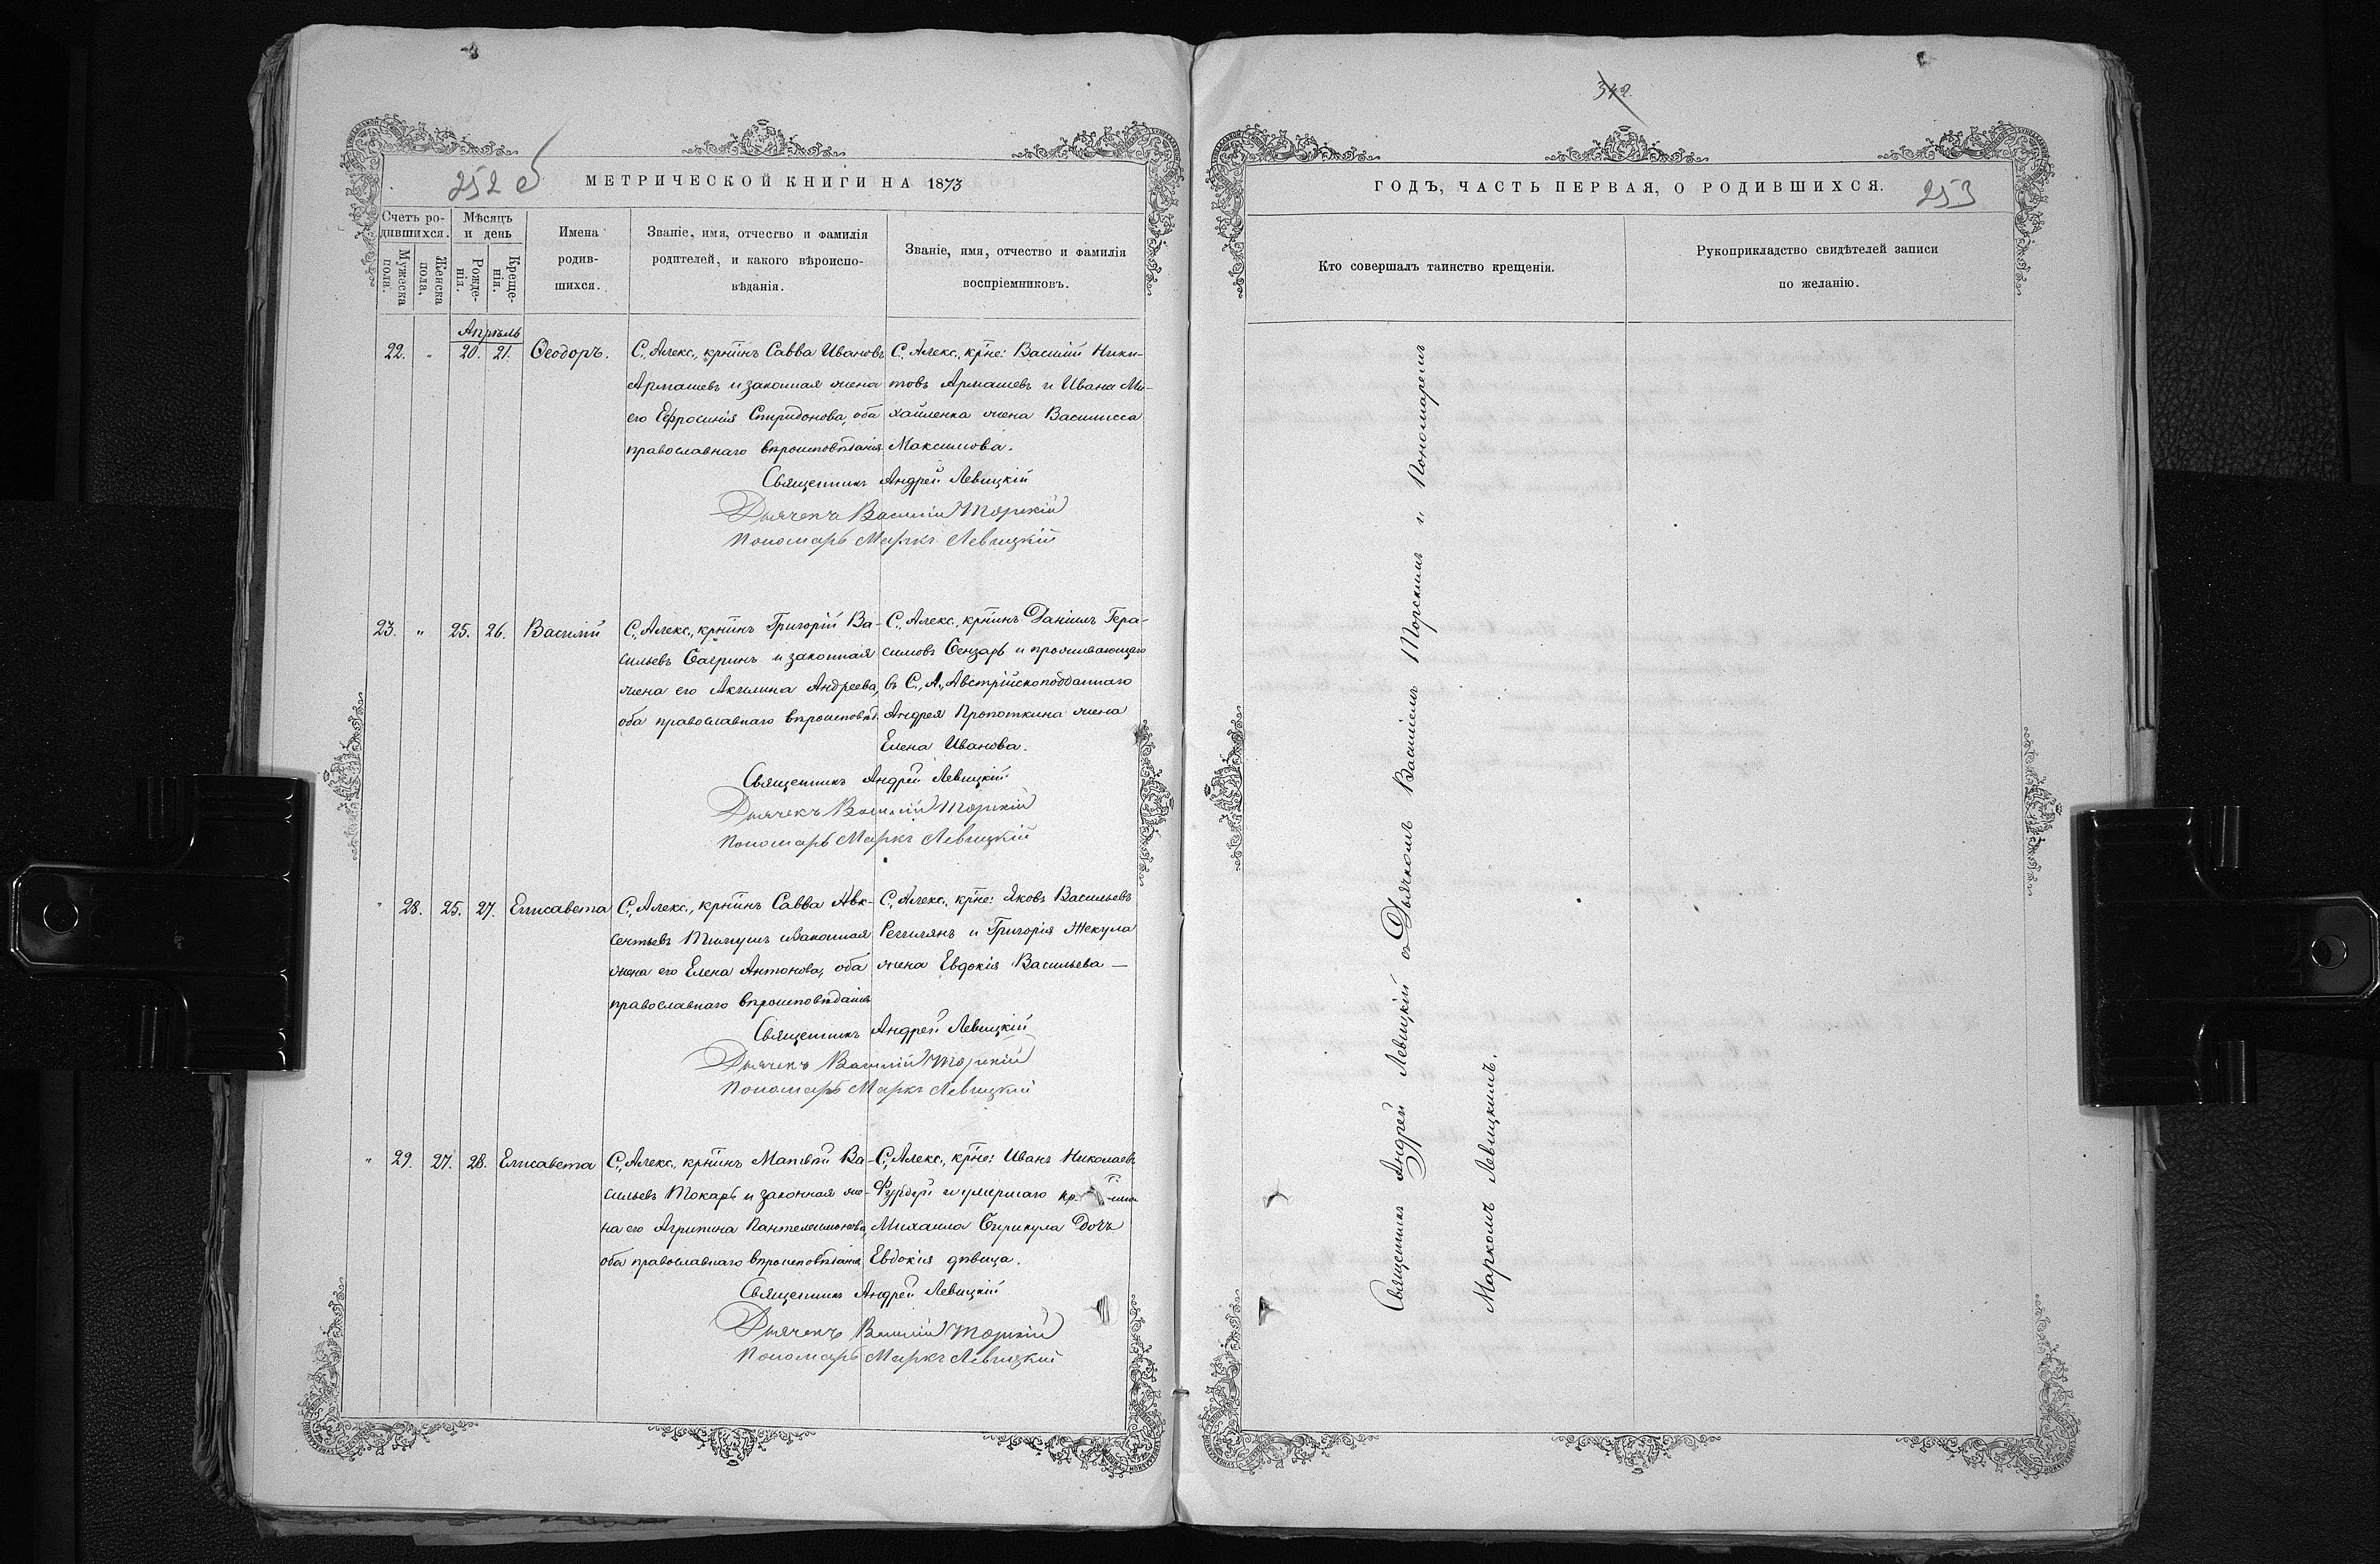 252 об
МЕТРИЧЕСКОЙ КНИГИ НА 1873
Счетъ ро-
дившихся.
Мужеска
пола.
Женска
пола.
Мѣсяцъ
и день
Рожде-
нія.
Креще-
нія.
Имена
родив-
шихся.
Званіе, имя, отчество и фамилія
родителей, и какого вѣроиспо-
вѣданія.
Званіе, имя, отчество и фамилія
воспріемниковъ.
Апрѣль
22. " 20. 21. Ѳеодоръ.
С., Алекс., кр–нинъ Савва Ивановъ
Армашевъ и законная жена
его Ефросинія Спиридонова, оба
православнаго вѣроисповѣданія
С., Алекс., кр–не: Василій Ники-
товъ Армашевъ и Ивана Ми-
хайленка жена Василисса
Максимова.
Священникъ Андрей Левицкій
Дьячекъ Василій Торскій
Пономарь Маркъ Левицкій
23. " 25. 26. Василій
С., Алекс., кр–нинъ Григорій Ва-
сильевъ и законная
жена его Акилина Андреева,
оба православнаго вѣроисповѣд.
С., Алекс., кр–нинъ Даніилъ Гера-
симовъ Сензарь и проживающаго
въ С., А., Австрійскоподданнаго
Андрея Пропоткина жена
Елена Иванова.
Священникъ Андрей Левицкій
Дьячекъ Василій Торскій
Пономарь Маркъ Левицкій
" 28. 25. 27. Елисавета
С., Алекс., кр–нинъ Савва Авк-
сентьевъ и законная
жена его Елена Антонова, оба
православнаго вѣроисповѣданія
С., Алекс., кр–не: Яковъ Васильевъ
и Григорія Жекула
жена Евдокія Васильева —
Священникъ Андрей Левицкій
Дьячекъ Василій Торскій
Пономарь Маркъ Левицкій
" 29. 27. 28. Елисавета
С., Алекс., кр–нинъ Матвѣй Ва-
сильевъ Токарь и законная же-
на его Агрипина Пантелеимонова,
оба православнаго вѣроисповѣданія
С., Алекс., кр–не: Иванъ Николаевъ
и умершаго
Михаила Бирикула дочь
Евдокія дѣвица.
Священникъ Андрей Левицкій
Дьячекъ Василій Торскій
Пономарь Маркъ Левицкій
342.
ГОДЪ, ЧАСТЬ ПЕРВАЯ, О РОДИВШИХСЯ.
253
Кто совершалъ таинство крещенія.
Рукоприкладство свидѣтелей записи
по желанію.
Священникъ Андрей Левицкій съ Дьячкомъ Василіемъ Торскимъ и Пономаремъ
Маркомъ Левицкимъ.